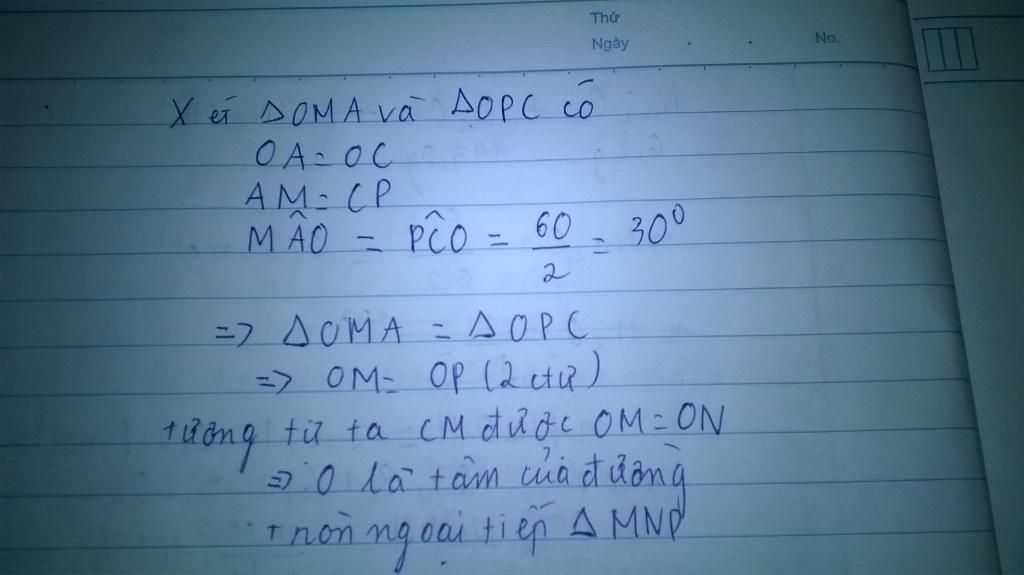 Thứ
Ngày . . No.
Xét ΔOMA và ΔOPC có
OA = OC
AM = CP
MÂO = PĈO = 60/2 = 30⁰
=> ΔOMA = ΔOPC
=> OM = OP (2 ctư)
tương tự ta CM được OM = ON
=> O là tâm của đường
tròn ngoại tiếp Δ MNP